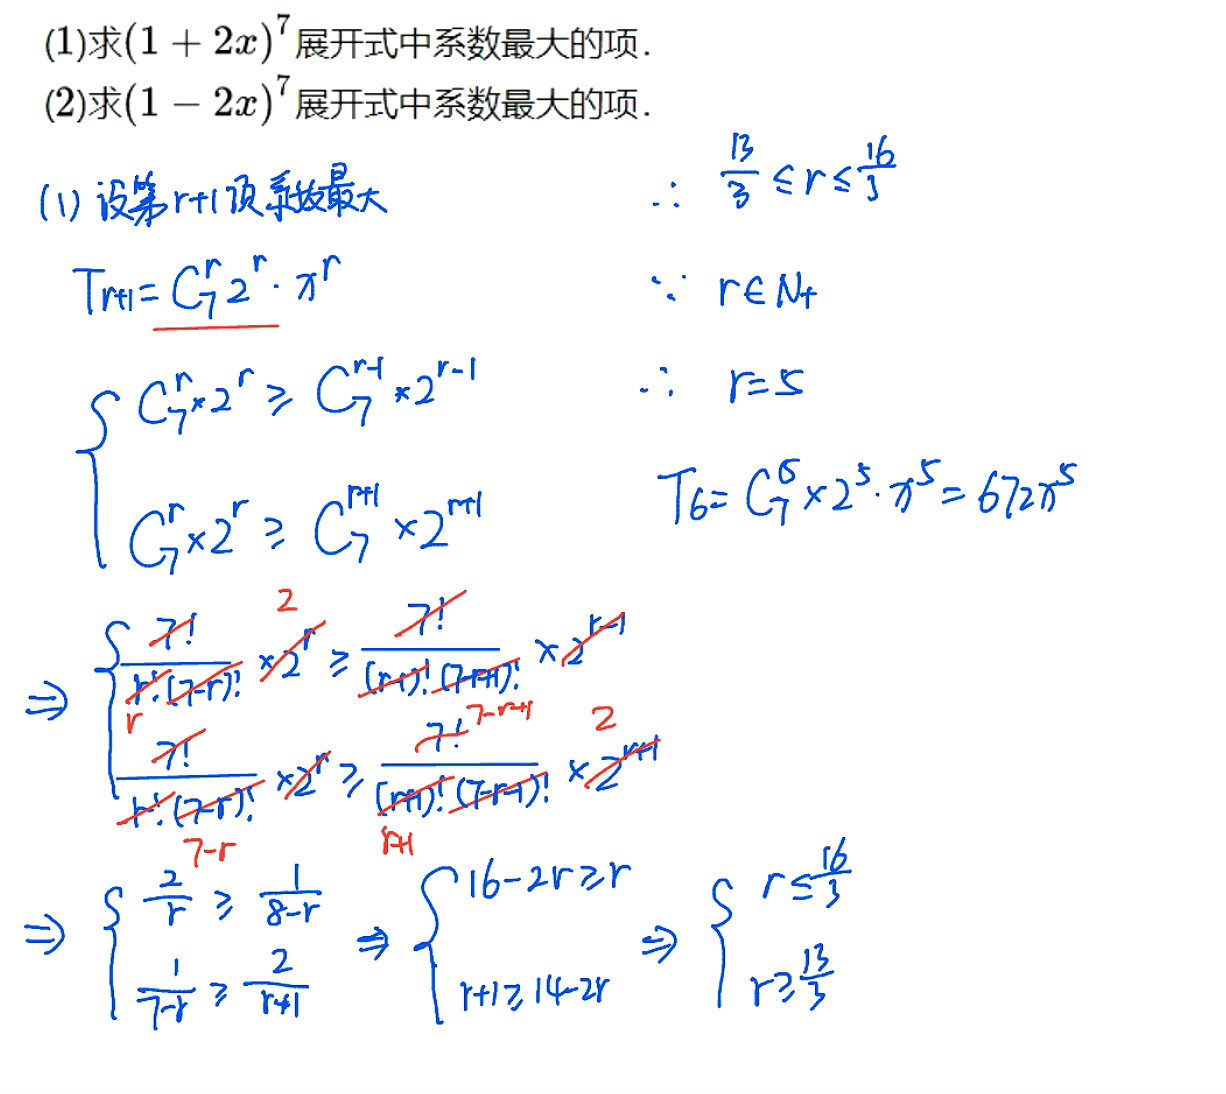 (1)求(1 + 2x)^7展开式中系数最大的项.
(2)求(1 − 2x)^7展开式中系数最大的项.
(1) 设第r+1项系数最大
T_{r+1} = C_7^r 2^r · x^r
{ C_7^r × 2^r ≥ C_7^{r-1} × 2^{r-1}
C_7^r × 2^r ≥ C_7^{r+1} × 2^{r+1}
⇒ { 7!/(r!·(7-r)!) × 2^r ≥ 7!/((r-1)!·(7-r+1)!) × 2^{r-1}
2
r
7-r+1
7!/(r!·(7-r)!) × 2^r ≥ 7!/((r+1)!·(7-r-1)!) × 2^{r+1}
2
7-r
r+1
⇒ { 2/r ≥ 1/(8-r)
1/(7-r) ≥ 2/(r+1)
⇒ { 16-2r ≥ r
r+1 ≥ 14-2r
⇒ { r ≤ 16/3
r ≥ 13/3
∴ 13/3 ≤ r ≤ 16/3
∵ r∈N+
∴ r=5
T_6 = C_7^5 × 2^5 · x^5 = 672x^5